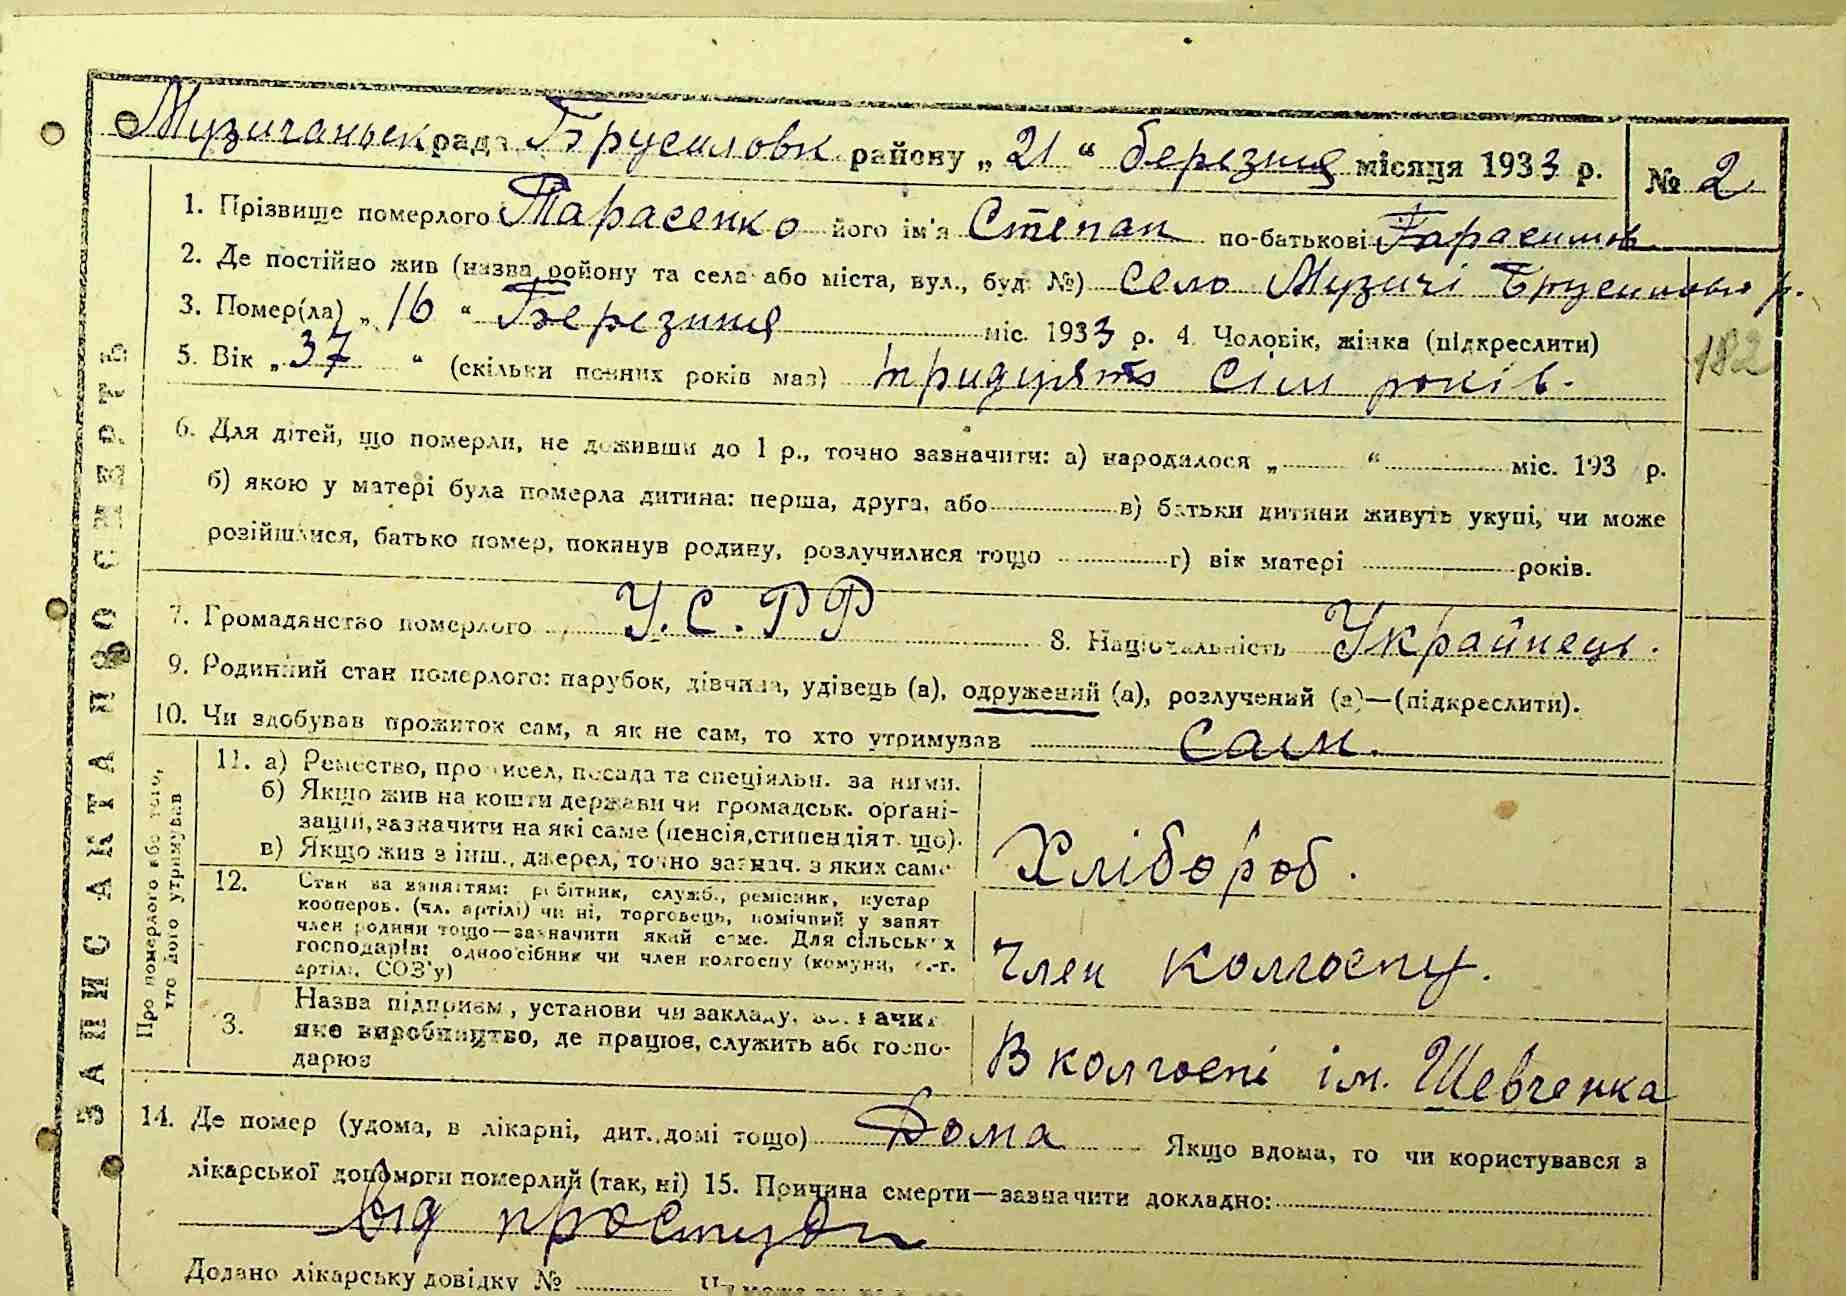 Музичанськ рада Брусиловськ району „21“ березня місяця 1933 р. № 2
1. Прізвище померлого Тарасенко його ім'я Степан по-батькові Гарасимов
2. Де постійно жив (назва району та села або міста, вул., буд. №) село Музичі р.
3. Помер(ла) „16“ Березня міс. 1933 р. 4. Чоловік, жінка (підкреслити)
182
5. Вік „37“ (скільки повних років мав) тридцять сім років.
6. Для дітей, що померли, не доживши до 1 р., точно зазначити: а) народилося „ “ міс. 193 р.
б) якою у матері була померла дитина: перша, друга, або в) батьки дитини живуть укупі, чи може
розійшлися, батько помер, покинув родину, розлучилися тощо г) вік матері років.
7. Громадянство померлого У.С.Р.Р 8. Національність Украйнець.
9. Родинний стан померлого: парубок, дівчина, удівець (а), одружений (а), розлучений (а)—(підкреслити).
10. Чи здобував прожиток сам, а як не сам, то хто утримував сам.
ЗАПИС АКТА ПРО СМЕРТЬ
Про померлого або того,
хто його утримував
11. а) Ремество, промисел, посада та спеціяльн. за ними.
б) Якщо жив на кошти держави чи громадськ. органі-
зацій, зазначити на які саме (пенсія, стипендія т. що).
в) Якщо жив з інш. джерел, точно зазнач. з яких саме
Хлібороб.
12. Стан за заняттям: робітник, служб., ремісник, кустар
кооперов. (чл. артілі) чи ні, торговець, помічний у занят
член родини тощо—зазначити який саме. Для сільських
господарів: одноосібник чи член колгоспу (комуни, с.-г.
артілі, СОЗ'у)
Член колгоспу.
3. Назва підприєм., установи чи закладу,
яке виробництво, де працює, служить або госпо-
дарює
В колгоспі ім. Шевченка
14. Де помер (удома, в лікарні, дит. домі тощо) Дома Якщо вдома, то чи користувався з
лікарської допомоги померлий (так, ні) 15. Причина смерти—зазначити докладно:
від простуди
Додано лікарську довідку №